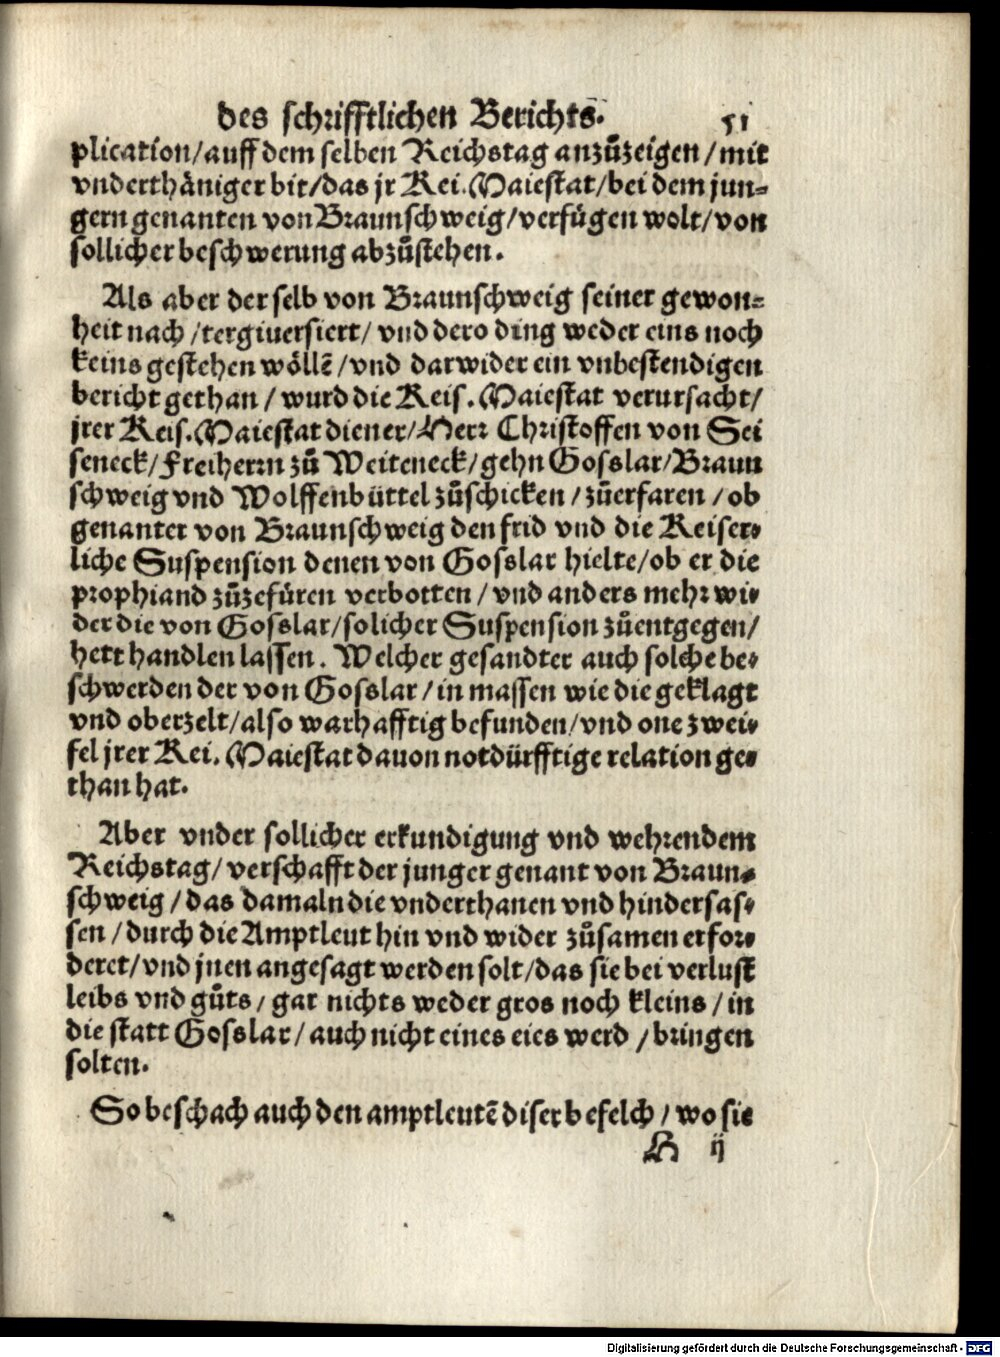 des schrifftlichen Berichts. 51
plication/auff dem selben Reichstag anzůzeigen/mit
vnderthäniger bit/das jr Kei. Maiestat/bei dem jun=
gern genanten von Braunschweig/verfügen wolt/von
sollicher beschwerung abzůstehen.
Als aber der selb von Braunschweig seiner gewon=
heit nach/tergiuersiert/vnd dero ding weder eins noch
keins gestehen wöllē/vnd darwider ein vnbestendigen
bericht gethan/wurd die Keis. Maiestat verursacht/
jrer Keis. Maiestat diener/Herr Christoffen von Sei
seneck/Freiherrn zů Weiteneck/gehn Gosslar/Braun
schweig vnd Wolffenbüttel zůschicken/zůerfaren/ob
genanter von Braunschweig den frid vnd die Keiser=
liche Suspension denen von Gosslar hielte/ob er die
prophiand zůzefüren verbotten/vnd anders mehr wi=
der die von Gosslar/solicher Suspension zůentgegen/
hett handlen lassen. Welcher gesandter auch solche be=
schwerden der von Gosslar/in massen wie die geklagt
vnd oberzelt/also warhafftig befunden/vnd one zwei=
fel jrer Kei. Maiestat dauon notdürfftige relation ge=
than hat.
Aber vnder sollicher erkundigung vnd wehrendem
Reichstag/verschafft der junger genant von Braun=
schweig/das damaln die vnderthanen vnd hindersas=
sen/durch die Amptleut hin vnd wider zůsamen erfor=
deret/vnd jnen angesagt werden solt/das sie bei verlust
leibs vnd gůts/gar nichts weder gros noch kleins/in
die statt Gosslar/auch nicht eines eies werd/bringen
solten.
So beschach auch den amptleutē diser befelch/wo sie
H ij
Digitalisierung gefördert durch die Deutsche Forschungsgemeinschaft - DFG